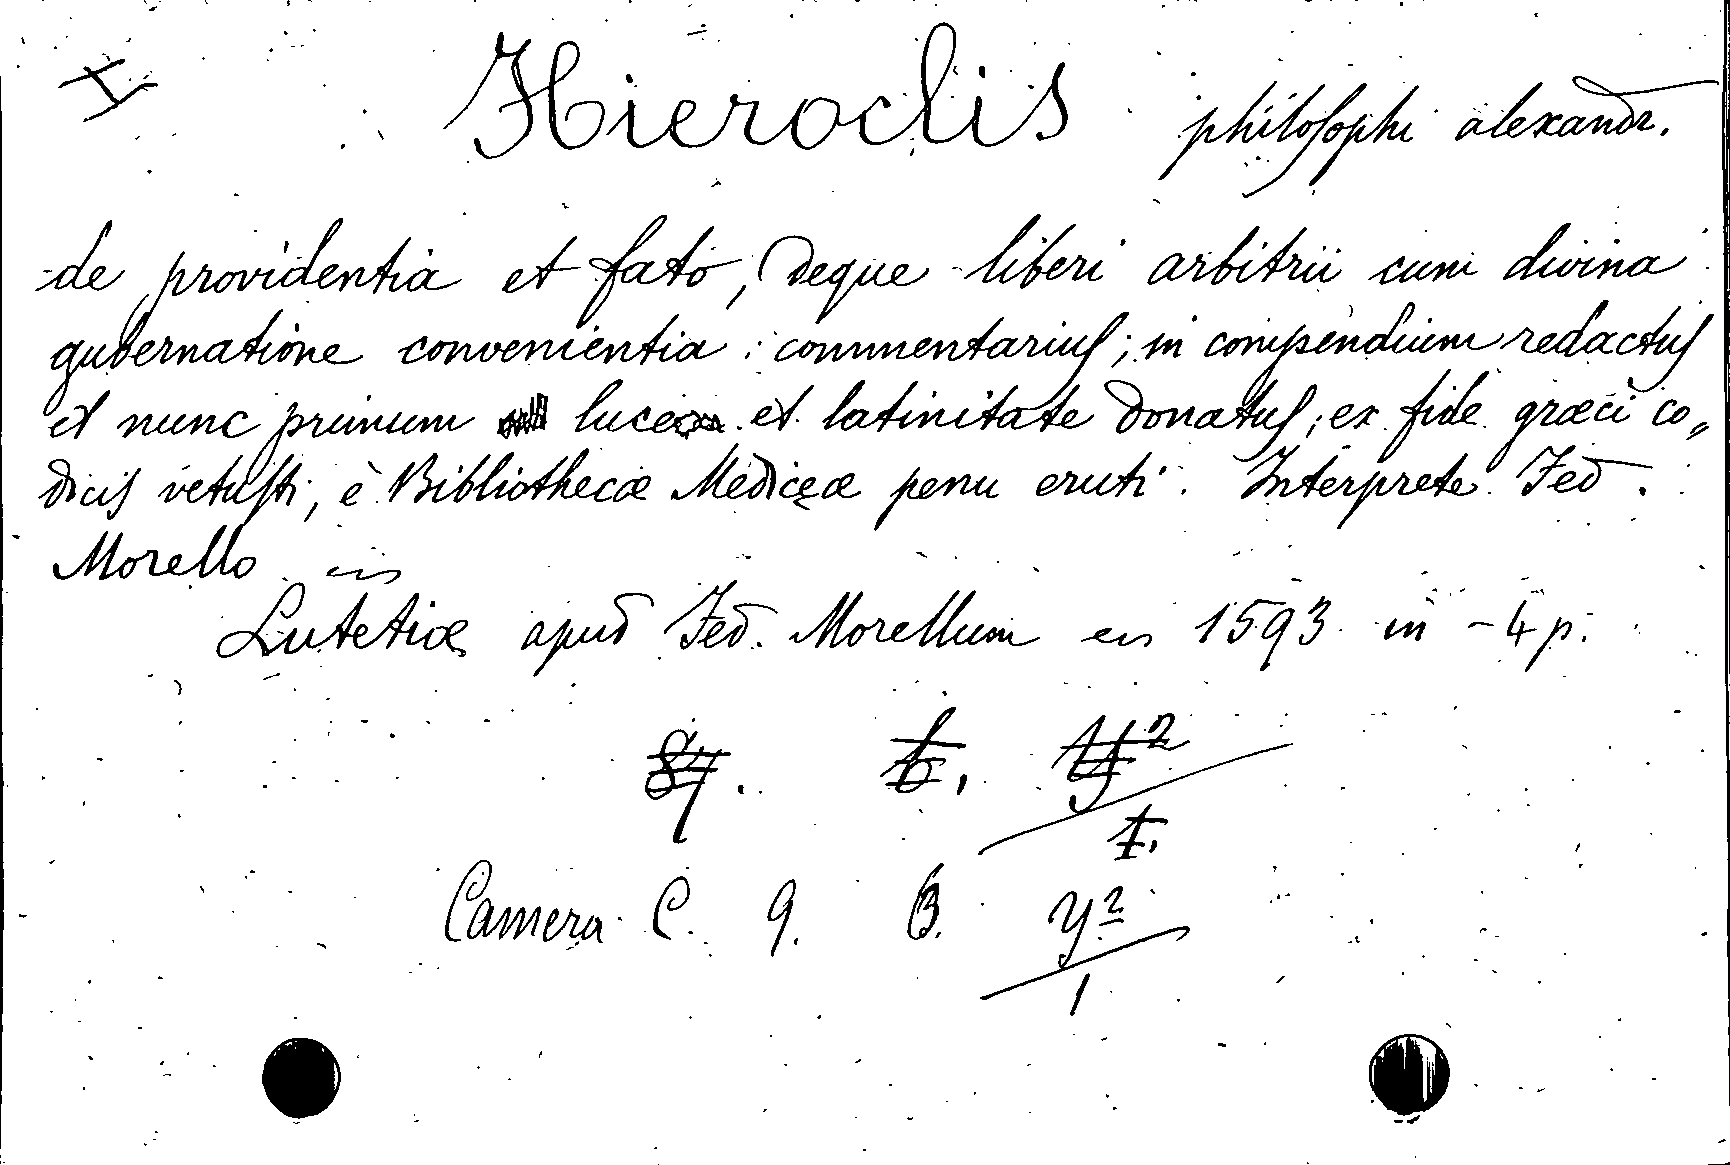 Hieroclis philosophi alexandr.
de providentia et fato, deque liberi arbitrii cum divina
gubernatione convenientia : commentarius; in compendium redactus
et nunc primum luce et latinitate donatus; ex fide græci co„
dicis vetusti, è Bibliothecæ Mediceæ penu eruti. Interprete Fed.
Morello
Lutetiæ apud Fed. Morellum 1593 in-4 p.
87. b. y²
1.
Camera C. 9. B. y²
1